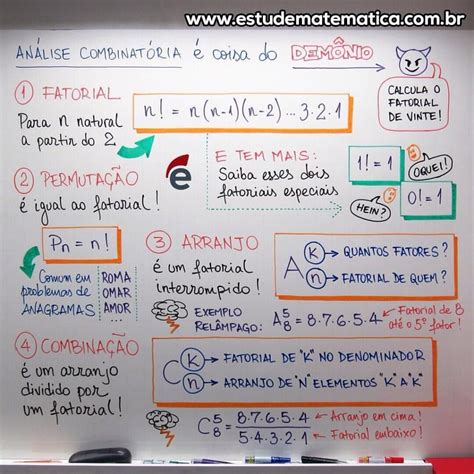 www.estudematematica.com.br
ANÁLISE COMBINATÓRIA é coisa do DEMÔNIO
CALCULA O
FATORIAL
DE VINTE!
1 FATORIAL
Para n natural
a partir do 2
n! = n(n-1)(n-2)...3.2.1
E TEM MAIS:
Saiba esses dois
fatoriais especiais
1! = 1
OQUEI!
0! = 1
HEIN?
e
2 PERMUTAÇÃO
é igual ao fatorial!
Pn = n!
Comum em
problemas de
ANAGRAMAS
ROMA
OMAR
AMOR
...
3 ARRANJO
é um fatorial
interrompido!
A
K → QUANTOS FATORES?
n → FATORIAL DE QUEM?
EXEMPLO
RELÂMPAGO:
A 5 8 = 8.7.6.5.4
← Fatorial de 8
até o 5º fator!
4 COMBINAÇÃO
é um arranjo
dividido por
um fatorial!
C
K → FATORIAL DE "K" NO DENOMINADOR
n → ARRANJO DE "N" ELEMENTOS "K" A "K"
C 5 8 = 8.7.6.5.4 ← Arranjo em cima!
5.4.3.2.1 ← Fatorial embaixo!